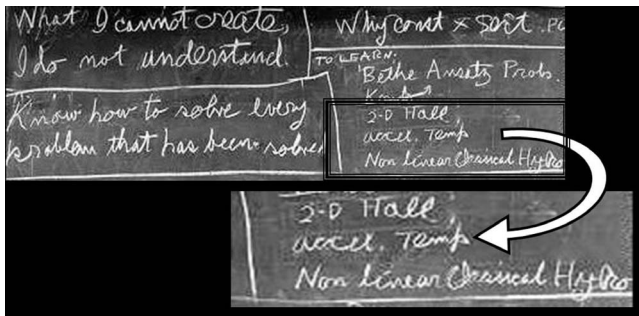 What I cannot create,
I do not understand.
Know how to solve every
problem that has been solved
Why const × sort . Po
TO LEARN.
Bethe Ansatz Probs.
Kondo
2-D Hall
accel. Temp
Non linear Classical Hydro
2-D Hall
accel. Temp
Non linear Classical Hydro